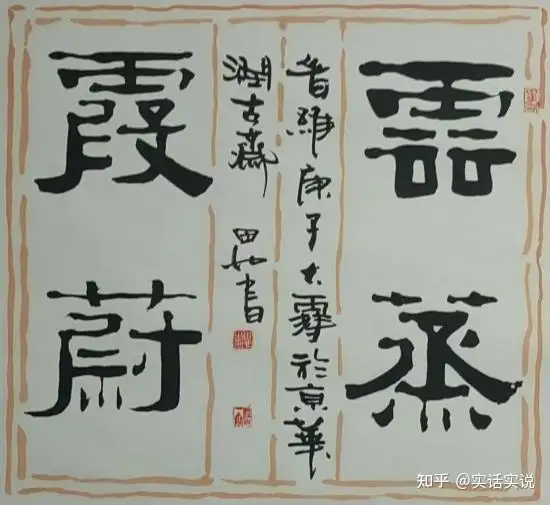 雲蒸
旹維庚子大雪於京華
潤古齋 田如書
霞蔚
知乎 @实话实说